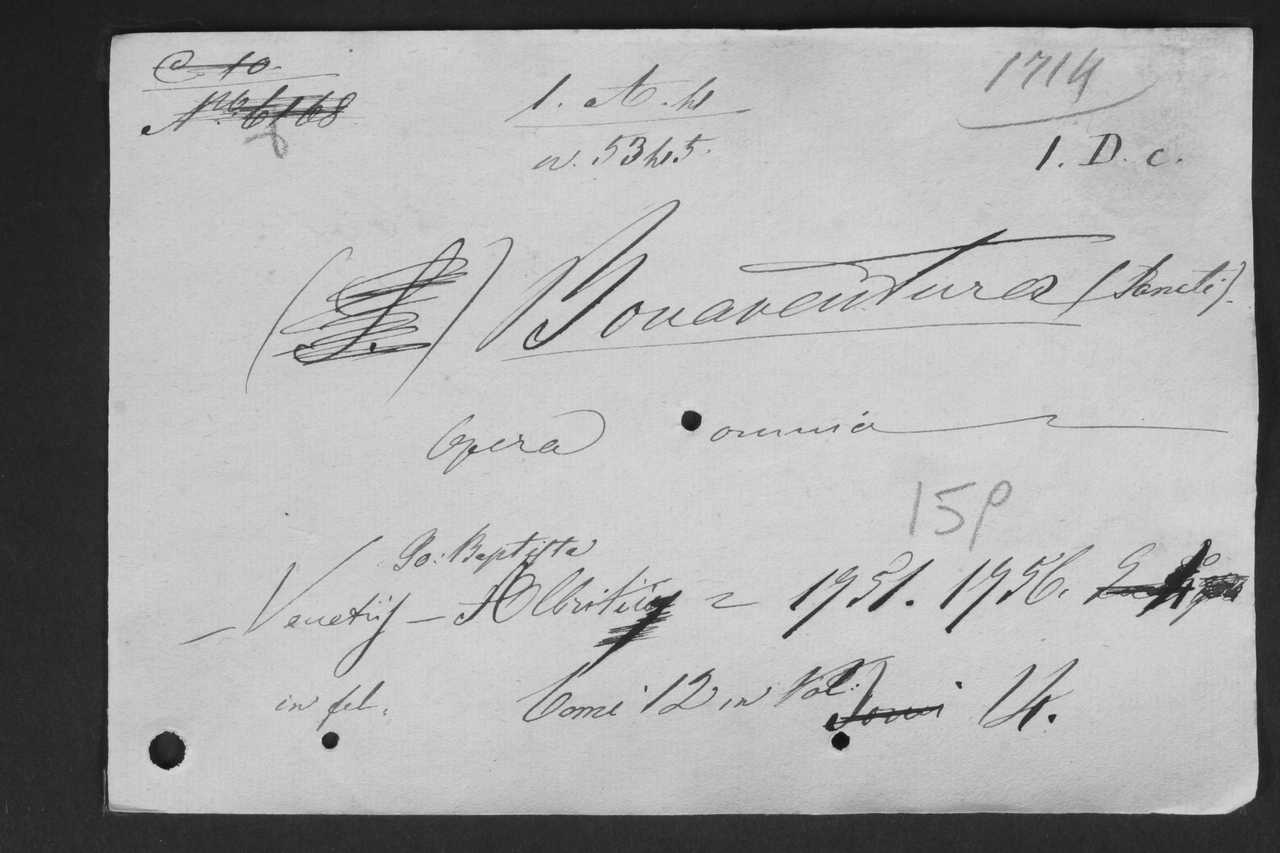 C. 10.
N.º 6168
1. A. h
1714
1. D. c.
(S.) Bonaventura (Sancti).
Opera omnia
15p
Jo: Baptista
Venetijs – Albritius = 1751. 1756.
in fol. Tomi 12 in Vol: Tomi 14.